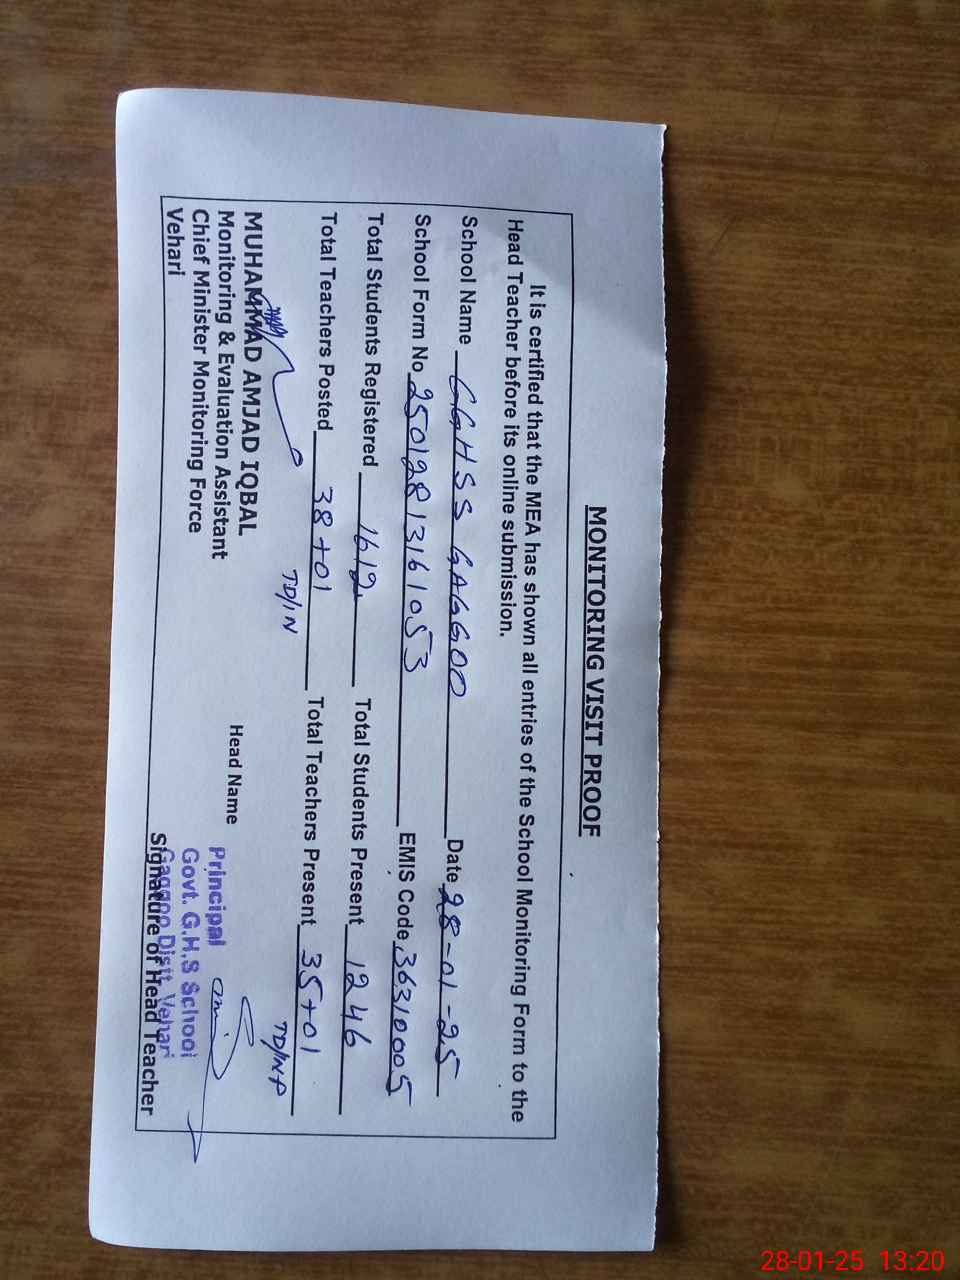 MONITORING VISIT PROOF
It is certified that the MEA has shown all entries of the School Monitoring Form to the
Head Teacher before its online submission.
School Name GGHSS GAGGOO Date 28-01-25
School Form No 25012813161053 EMIS Code 36310005
Total Students Registered 1612 Total Students Present 1246
Total Teachers Posted 38+01 Total Teachers Present 35+01
TD/IN TD/INP
MUHAMMAD AMJAD IQBAL Head Name
Monitoring & Evaluation Assistant Principal
Chief Minister Monitoring Force Govt. G.H.S School
Vehari Gaggoo Distt. Vehari
Signature of Head Teacher
28-01-25 13:20